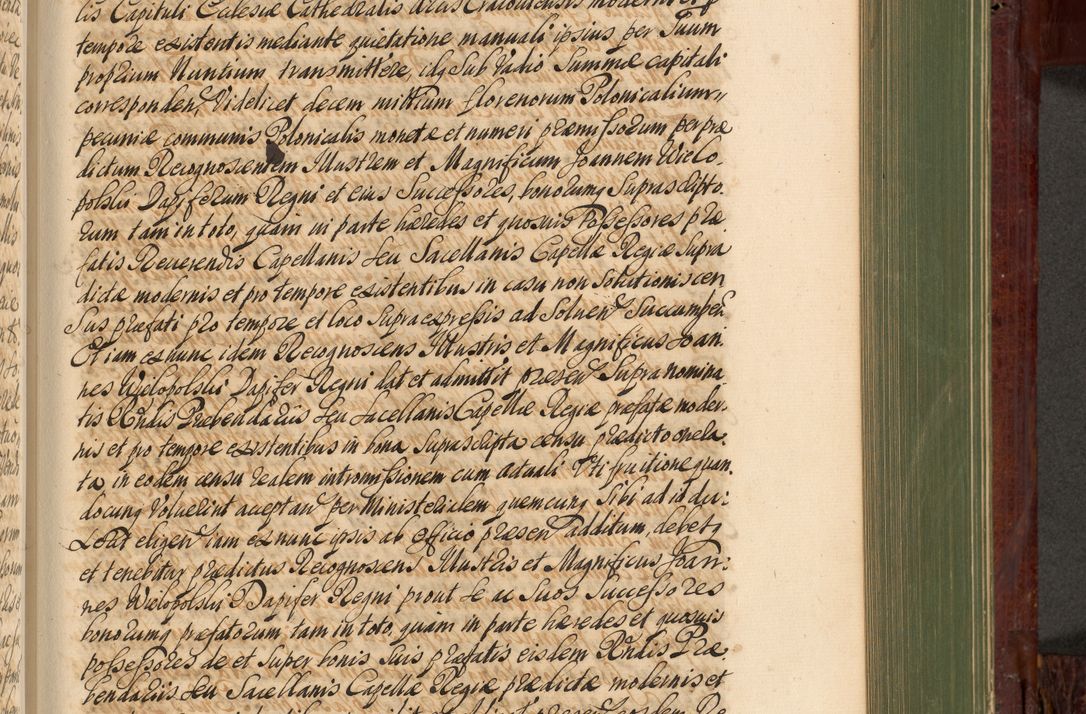 lis Capituli Ecclesiæ Cathedralis Arcis Cracoviensis moderni et p
tempore existentis mediante quietatione manuali ipsius per Suum
proprium Nuntium transmittere, idq Sub Vadio Summæ capitali
corresponden, Videlicet decem millium florenorum Polonicalium,,
pecuniæ communis Polonicalis monetæ et numeri præmissorum per præ
dictum Recognoscentem Illustrem et Magnificum Joannem Wielo,
polski Dapiferum Regni et eius Successores, bonorumq Suprascripto,
rum tam in toto, quam in parte hæredes et quosuis Possessores præ,
fatis Reuerendis Capellanis seu Sacellanis Capellæ Regiæ Supra
dictæ modernis et pro tempore existentibus in casu non Solutionis cen
Sus præfati pro tempore et loco Supra expressis ad Solven Succumben
Etiam ex nunc idem Recognoscens Illustris et Magnificus Joan
nes Wielopolski Dapifer Regni dat et admittit præsen Supra nomina,
tis Rndis Præbendariis seu sacellanis Capellæ Regiæ præfatæ moder,
nis et pro tempore existentibus in bona Suprascripta censu prædicto onera,
ta in eodem censu realem intromissionem cum actuali Vti fruitione quan,
docunq Voluerint acceptan per Ministerialem quemcunq Sibi ad id du:
xerat eligen iam ex nunc ipsis ab officio præsen additum, debetq
et tenebitur prædictus Recognoscens Illustris et Magnificus Joan:
nes Wielopolski Dapifer Regni prout se ac Suos Successores
bonorumq præfatorum, tam in toto, quam in parte hæredes et quosuis
possessores de et Super bonis Suis præfatis eisdem Rndis Præ
bendariis seu Sacellanis Capellæ Regiæ prædictæ modernis et